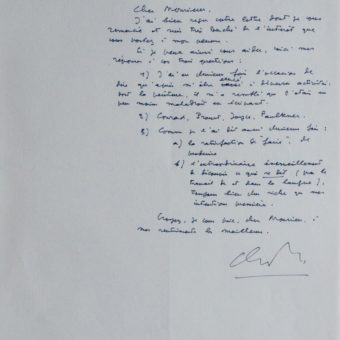 Cher Monsieur,
J'ai bien reçu votre lettre dont je vous
remercie et suis très touché de l'intérêt que
vous portez à mon œuvre.
Si je peux ainsi vous aider, voici mes
réponses à vos trois questions :
1) J'ai eu plusieurs fois l'occasion de
dire qu'après m'être essayé à diverses activités
dont la peinture, il m'a semblé que c'était un
peu moins maladroit en écrivant.
2) Conrad, Proust, Joyce, Faulkner.
3) Comme je l'ai dit aussi plusieurs fois :
a) la satisfaction de "faire", de
produire
b) l'extraordinaire émerveillement
de découvrir ce qui se fait (par le
travail de et dans la langue),
toujours bien plus riche que mon
intention première.
Croyez, je vous prie, cher Monsieur, à
mes sentiments les meilleurs.